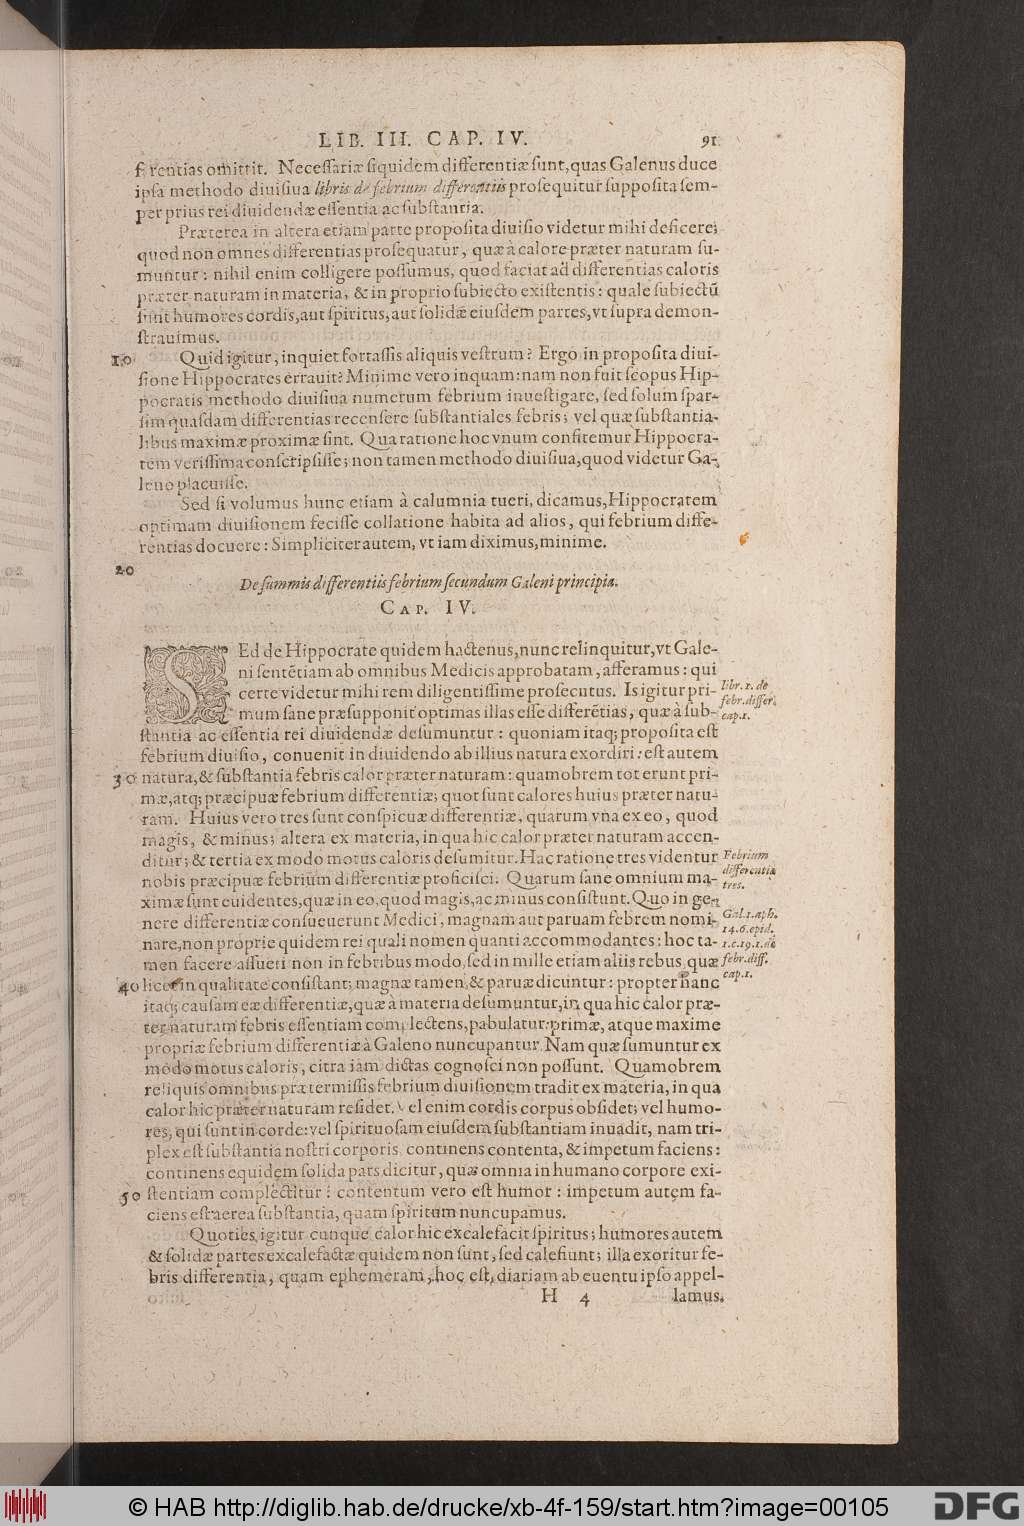 LIB. III. CAP. IV. 91
ferentias omittit. Necessariæ siquidem differentiæ sunt, quas Galenus duce
ipsa methodo diuisiua libris de febrium differentiis prosequitur supposita sem-
per prius rei diuidendæ essentia ac substantia.
Præterea in altera etiam parte proposita diuisio videtur mihi deficere;
quod non omnes differentias prosequatur, quæ à calore præter naturam su-
muntur: nihil enim colligere possumus, quod faciat ad differentias caloris
præter naturam in materia, & in proprio subiecto existentis: quale subiectū
sunt humores cordis, aut spiritus, aut solidæ eiusdem partes, vt supra demon-
strauimus.
10 Quid igitur, inquiet fortassis aliquis vestrum? Ergo in proposita diui-
sione Hippocrates errauit? Minime vero inquam: nam non fuit scopus Hip-
pocratis methodo diuisiua numerum febrium inuestigare, sed solum spar-
sim quasdam differentias recensere substantiales febris; vel quæ substantia-
libus maximæ proximæ sint. Qua ratione hoc vnum confitemur Hippocra-
tem verissima conscripsisse; non tamen methodo diuisiua, quod videtur Ga-
leno placuisse.
Sed si volumus hunc etiam à calumnia tueri, dicamus, Hippocratem
optimam diuisionem fecisse collatione habita ad alios, qui febrium diffe-
rentias docuere: Simpliciter autem, vt iam diximus, minime.
20
De summis differentiis febrium secundum Galeni principia.
CAP. IV.
SEd de Hippocrate quidem hactenus, nunc relinquitur, vt Gale-
ni sentētiam ab omnibus Medicis approbatam, afferamus: qui
certe videtur mihi rem diligentissime prosecutus. Is igitur pri-
mum sane præsupponit optimas illas esse differētias, quæ à sub-
stantia ac essentia rei diuidendæ desumuntur: quoniam itaq; proposita est
febrium diuisio, conuenit in diuidendo ab illius natura exordiri: est autem
30 natura, & substantia febris calor præter naturam: quamobrem tot erunt pri-
mæ, atq; præcipuæ febrium differentiæ; quot sunt calores huius præter natu-
ram. Huius vero tres sunt conspicuæ differentiæ, quarum vna ex eo, quod
magis, & minus; altera ex materia, in qua hic calor præter naturam accen-
ditur; & tertia ex modo motus caloris desumitur. Hac ratione tres videntur
nobis præcipuæ febrium differentiæ proficisci. Quarum sane omnium ma-
ximæ sunt euidentes, quæ in eo, quod magis, ac minus consistunt. Quo in ge-
nere differentiæ consueuerunt Medici, magnam aut paruam febrem nomi-
nare, non proprie quidem rei quali nomen quanti accommodantes: hoc ta-
men facere assueti non in febribus modo, sed in mille etiam aliis rebus, quæ
40 licet in qualitate consistant; magnæ tamen, & paruæ dicuntur: propter hanc
itaq; causam eæ differentiæ, quæ à materia desumuntur, in qua hic calor præ-
ter naturam febris essentiam complectens, pabulatur: primæ, atque maxime
propriæ febrium differentiæ à Galeno nuncupantur. Nam quæ sumuntur ex
modo motus caloris, citra iam dictas cognosci non possunt. Quamobrem
reliquis omnibus prætermissis febrium diuisionem tradit ex materia, in qua
calor hic præter naturam residet. Vel enim cordis corpus obsidet; vel humo-
res, qui sunt in corde: vel spirituosam eiusdem substantiam inuadit, nam tri-
plex est substantia nostri corporis, continens contenta, & impetum faciens:
continens equidem solida pars dicitur, quæ omnia in humano corpore exi-
50 stentiam complectitur: contentum vero est humor: impetum autem fa-
ciens est aerea substantia, quam spiritum nuncupamus.
Quoties igitur cunque calor hic excalefacit spiritus; humores autem
& solidæ partes excalefactæ quidem non sunt, sed calefiunt; illa exoritur fe-
bris differentia, quam ephemeram, hoc est, diariam ab euentu ipso appel-
H 4 lamus.
libr. 1. de
febr. differ.
cap. 1.
Febrium
differentiæ
tres.
Gal. 1. aph.
14. 6. epid.
1. c. 19. 1. de
febr. diff.
cap. 1.
© HAB http://diglib.hab.de/drucke/xb-4f-159/start.htm?image=00105
DFG